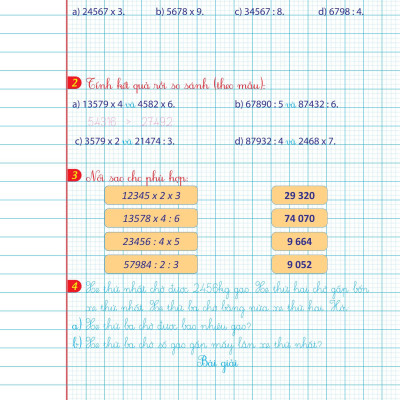 a) 24567 x 3. b) 5678 x 9. c) 34567 : 8. d) 6798 : 4.
2 Tính kết quả rồi so sánh (theo mẫu):
a) 13579 x 4 và 4582 x 6. b) 67890 : 5 và 87432 : 6.
54316 > 27492
c) 3579 x 2 và 21474 : 3. d) 87932 : 4 và 2468 x 7.
3 Nối sao cho phù hợp:
12345 x 2 x 3 29 320
13578 x 4 : 6 74 070
23456 : 4 x 5 9 664
57984 : 2 : 3 9 052
4 Xe thứ nhất chở được 2456kg gạo. Xe thứ hai chở gấp bốn
xe thứ nhất. Xe thứ ba chở bằng nửa xe thứ hai. Hỏi:
a) Xe thứ ba chở được bao nhiêu gạo?
b) Xe thứ ba chở số gạo gấp mấy lần xe thứ nhất?
Bài giải